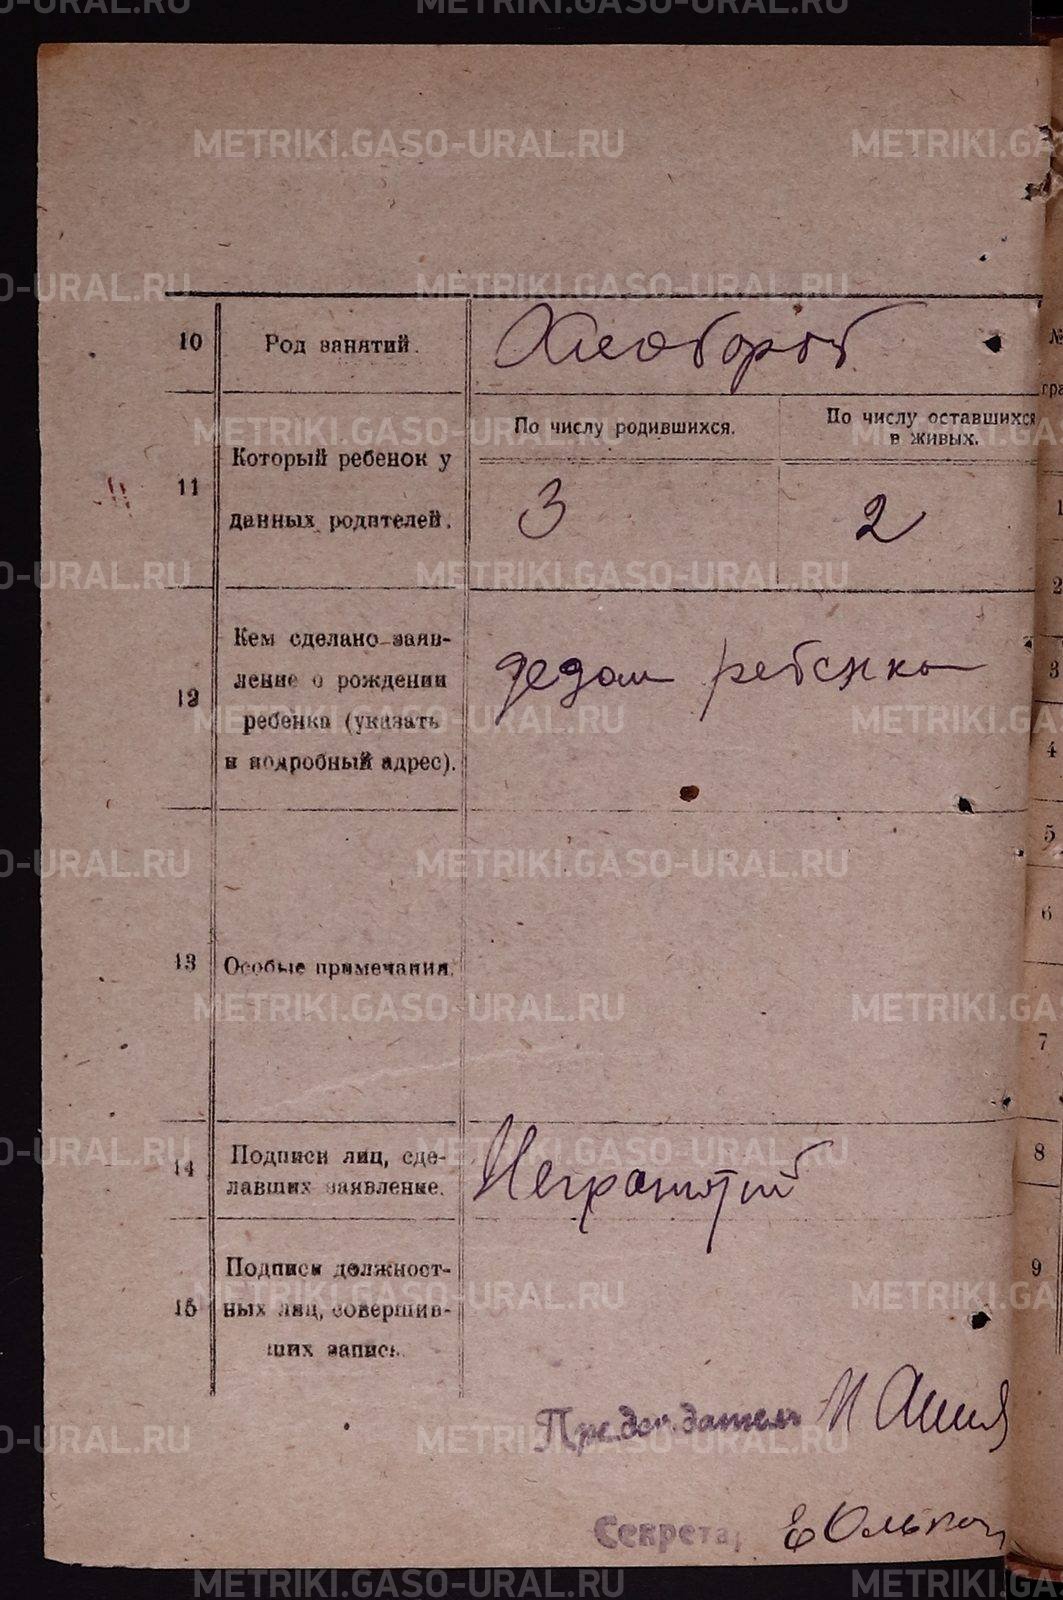 10
Род занятий.
Хлебороб
11
Который ребенок у
данных родителей.
По числу родившихся.
По числу оставшихся
в живых.
3
2
12
Кем сделано заяв-
ление о рождении
ребенка (указать
и подробный адрес).
дедом ребенка
13
Особые примечания.
14
Подписи лиц, сде-
лавших заявление.
Неграмотный
15
Подписи должност-
ных лиц, совершив-
ших запись.
Председатель
Секретар
№
гра
1
2
3
4
5
6
7
8
9
METRIKI.GASO-URAL.RU